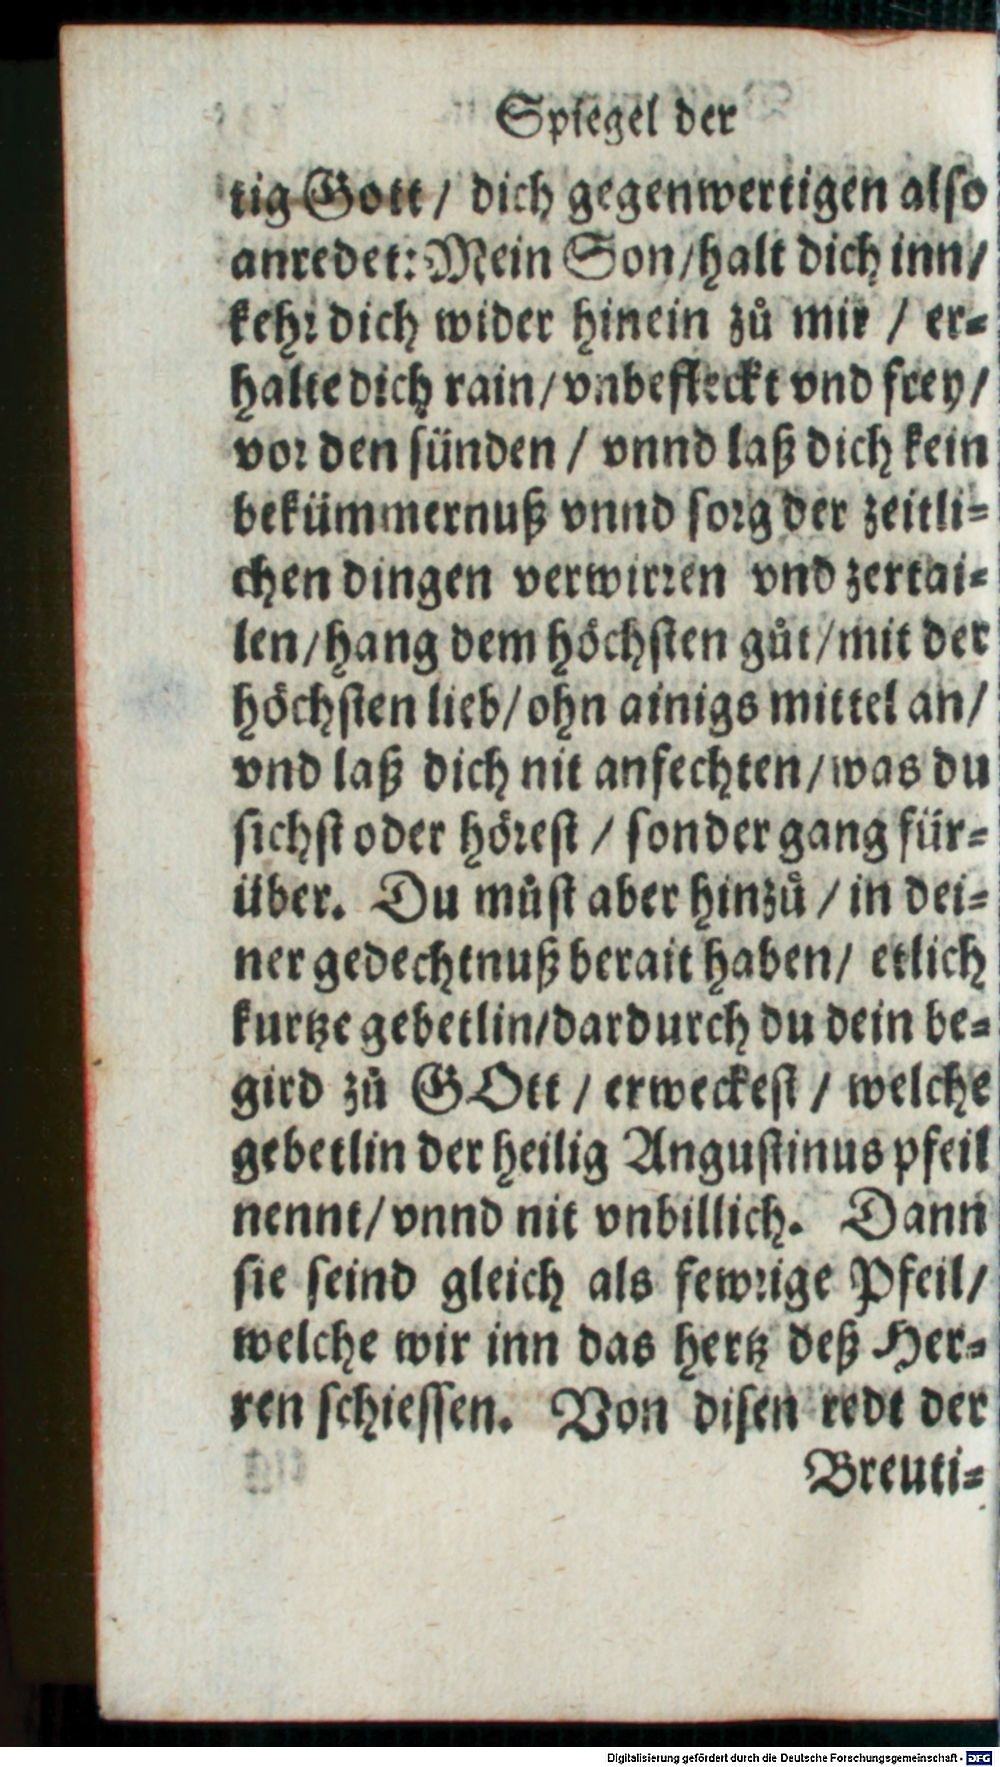 Spiegel der
tig Gott / dich gegenwertigen also
anredet: Mein Son / halt dich inn /
kehr dich wider hinein zů mir / er-
halte dich rain / vnbefleckt vnd frey /
vor den sünden / vnnd laß dich kein
bekümmernuß vnnd sorg der zeitli-
chen dingen verwirren vnd zertai-
len / hang dem höchsten gůt / mit der
höchsten lieb / ohn ainigs mittel an /
vnd laß dich nit anfechten / was du
sichst oder hörest / sonder gang für-
über. Du můst aber hinzů / in dei-
ner gedechtnuß berait haben / etlich
kurtze gebetlin / dardurch du dein be-
gird zů GOtt / erweckest / welche
gebetlin der heilig Angustinus pfeil
nennt / vnnd nit vnbillich. Dann
sie seind gleich als fewrige Pfeil /
welche wir inn das hertz deß Her-
ren schiessen. Von disen redt der
Breuti-
Digitalisierung gefördert durch die Deutsche Forschungsgemeinschaft - DFG